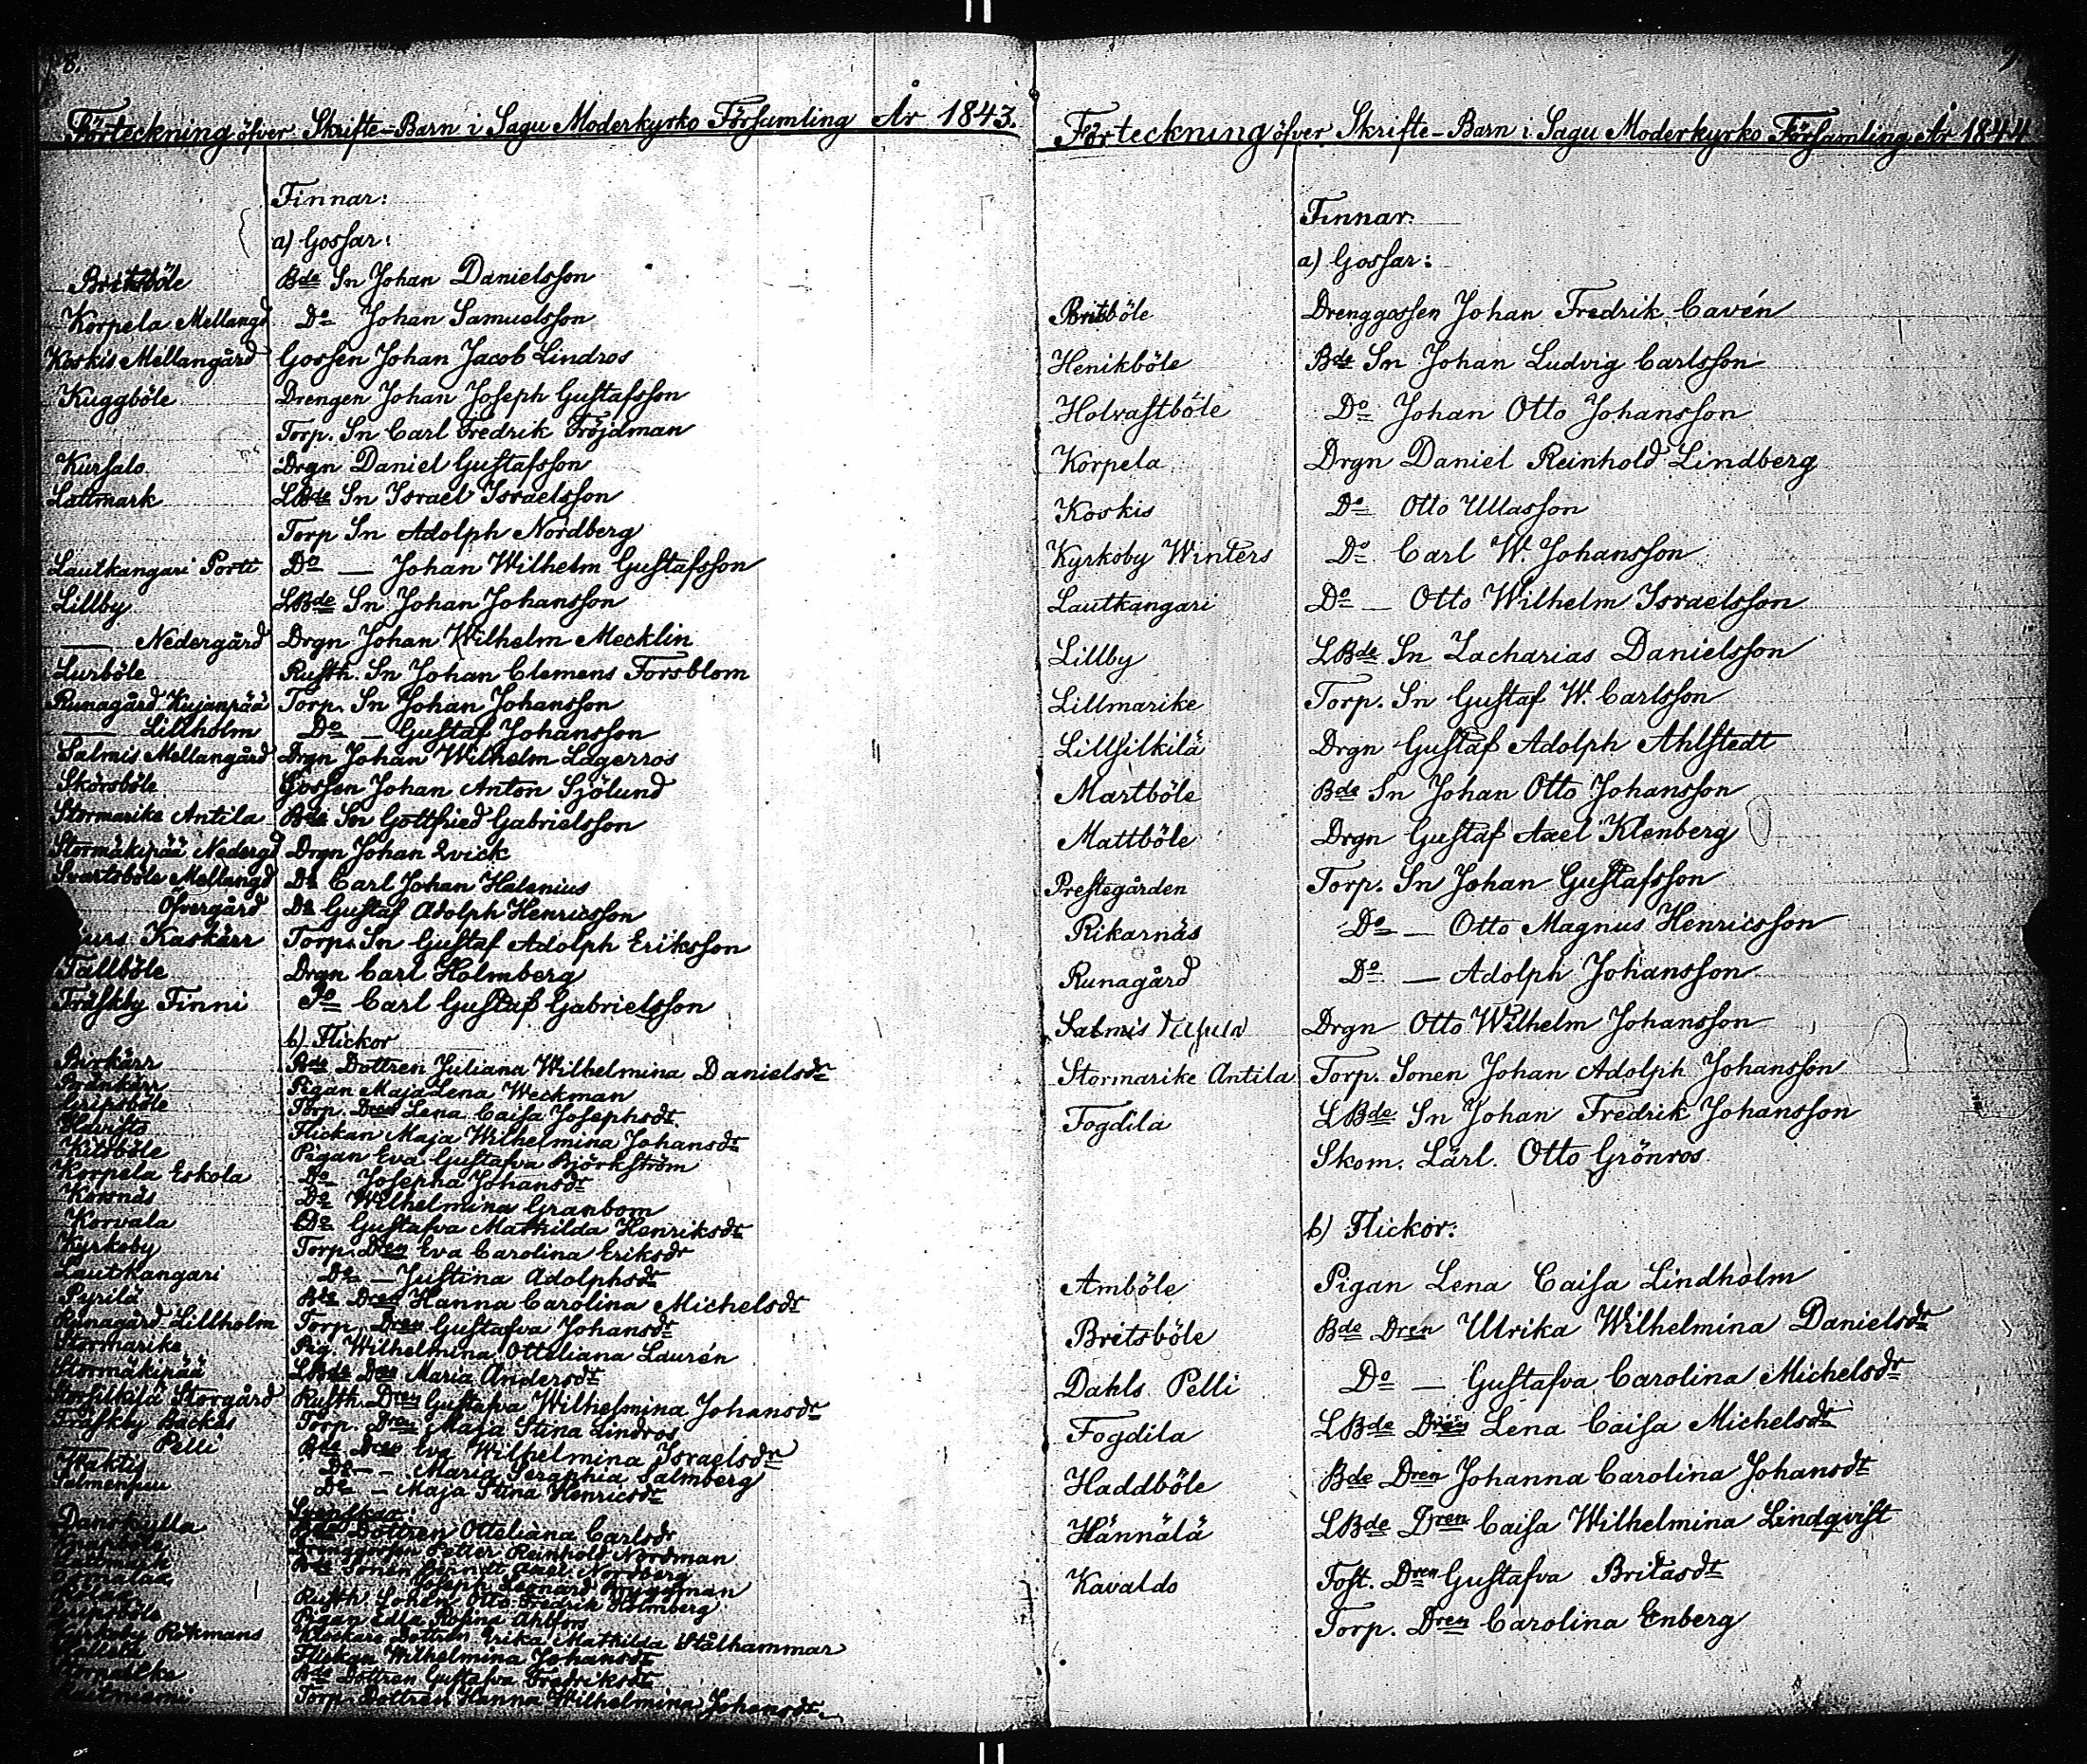 8.
Förteckning öfver Skrifte-Barn i Sagu Moderkyrko Församling År 1843.
Finnar:
a) Gossar:
Britsböle Bde Sn Johan Danielsson
Korpela Mellangd Do Johan Samuelsson
Koskis Mellangård Gossen Johan Jacob Lindros
Kuggböle Drengen Johan Joseph Gustafsson
Torp. Sn Carl Fredrik Fröjdman
Kursalo Drgn Daniel Gustafsson
Lattmark LBde Sn Israel Israelsson
Torp Sn Adolph Nordberg
Lautkangari Portti Do — Johan Wilhelm Gustafsson
Lillby LBde Sn Johan Johansson
— Nedergård Drgn Johan Wilhelm Mecklin
Lurböle Rusth. Sn Johan Clemens Forsblom
Runagård Kujanpää Torp. Sn Johan Johansson
— Lillholm Do — Gustaf Johansson
Salmis Mellangård Drgn Johan Wilhelm Lagerros
Skörsböle Gossen Johan Anton Sjölund
Stormarike Antila Bde Sn Gottfried Gabrielsson
Stormäkipää Nedergd Drgn Johan Qvick
Svartsböle Mellangd Do Carl Johan Halenius
Öfvergård Do Gustaf Adolph Henricsson
Kaskärr Torp. Sn Gustaf Adolph Eriksson
Tallböle Drgn Carl Holmberg
Träskby Finni Do Carl Gustaf Gabrielsson
b) Flickor
Birkärr Bde Dottren Juliana Wilhelmina Danielsdr
Brankärr Pigan Maja Lena Weckman
Gripsböle Torp. Dren Lena Caisa Josephsdr.
Havisto Flickan Maja Wilhelmina Johansdr
Kitsböle Pigan Eva Gustafva Björkström
Korpela Eskola Do Josepha Johansdr
Korsnäs Do Wilhelmina Granbom
Korvala Do Gustafva Mathilda Henriksdr
Kyrkoby Torp. Dren Eva Carolina Eriksdr
Lautkangari Do — Justina Adolphsdr
Pyrilä Bde Dren Hanna Carolina Michelsdr
Runagård Lillholm Torp. Dren Gustafva Johansdr
Stormarike Pig. Wilhelmina Otteliana Laurén
Stormäkipää LBde Dren Maria Andersdr
Storsilkilä Storgård Rusth. Dren Gustafva Wilhelmina Johansdr
Träskby Backas Torp. Dren Maja Stina Lindros
— Pelli Bde Dren Eva Wilhelmina Israelsdr
Waktis Do — Maria Seraphia Salmberg
Salmenpuu Do — Maja Stina Henricsdr
Svenskar:
Danskulla Bde Dottren Otteliana Carlsdr
Petter Reinhold Nordman
Lattmark Bde Sonen Berndt Axel Nordberg
Joseph Leonard Bryggman
Rusth. Sonen Otto Fredrik Holmberg
Gripsböle Pigan Edla Rosina Ahlfors
Kyrkoby Rökmans Klockare Dottren Erika Mathilda Stålhammar
Flickan Wilhelmina Johansdr
Bde Dottren Gustafva Fredriksdr
Torp. Dottren Hanna Wilhelmina Johansdr.
9.
Förteckning öfver Skrifte-Barn i Sagu Moderkyrko Församling År 1844
Finnar:
a) Gossar:
Britsböle Drenggossen Johan Fredrik Cavén
Henikböle Bde Sn Johan Ludvig Carlsson
Holvastböle Do Johan Otto Johansson
Korpela Drgn Daniel Reinhold Lindberg
Koskis Do Otto Ullasson
Kyrkoby Winters Do Carl W. Johansson
Lautkangari Do — Otto Wilhelm Israelsson
Lillby LBde Sn Zacharias Danielsson
Lillmarike Torp. Sn Gustaf W. Carlsson
Lillsilkilä Drgn Gustaf Adolph Ahlstedt
Martböle Bde Sn Johan Otto Johansson
Mattböle Drgn Gustaf Axel Klenberg
Prestegården Torp. Sn Johan Gustafsson
Rikarnäs Do — Otto Magnus Henricsson
Runagård Do — Adolph Johansson
Salmis Drgn Otto Wilhelm Johansson
Stormarike Antila Torp. Sonen Johan Adolph Johansson
Fogdila LBde Sn Johan Fredrik Johansson
Skom. Lärl. Otto Grönros
b) Flickor:
Amböle Pigan Lena Caisa Lindholm
Britsböle Bde Dren Ulrika Wilhelmina Danielsdr
Dahls Pelli Do — Gustafva Carolina Michelsdr
Fogdila LBde Dren Lena Caisa Michelsdr
Haddböle Bde Dren Johanna Carolina Johansdr
Hännälä LBde Dren Caisa Wilhelmina Lindqvist
Kavaldo Fost. Dren Gustafva Britasdr
Torp. Dren Carolina Enberg